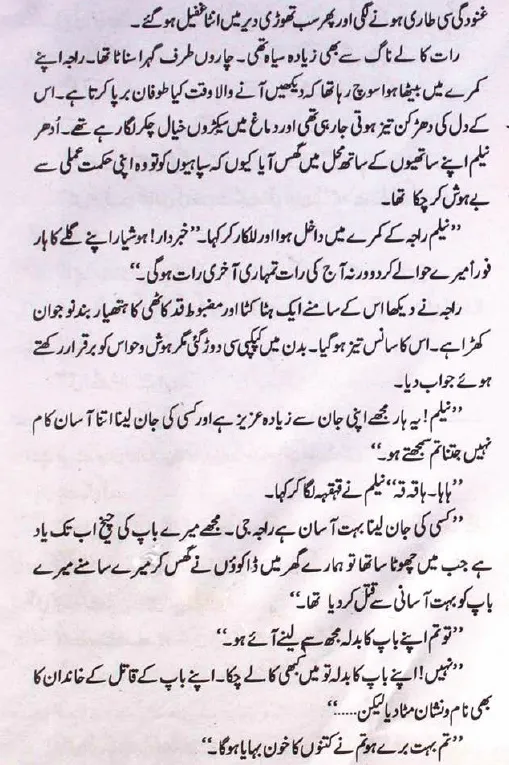 غنودگی سی طاری ہونے لگی اور پھر سب تھوڑی دیر میں اتنا غفیل ہو گئے۔
رات کالے ناگ سے بھی زیادہ سیاہ تھی۔ چاروں طرف گہرا سناٹا تھا۔ راجہ اپنے
کمرے میں بیٹھا ہوا سوچ رہا تھا کہ دیکھیں آنے والا وقت کیا طوفان برپا کرتا ہے۔ اس
کے دل کی دھڑکن تیز ہوتی جا رہی تھی اور دماغ میں سیکڑوں خیال چکر لگا رہے تھے۔ اُدھر
نیلم اپنے ساتھیوں کے ساتھ محل میں گھس آیا کیوں کہ سپاہیوں کو تو وہ اپنی حکمت عملی سے
بے ہوش کر چکا تھا۔
”نیلم راجہ کے کمرے میں داخل ہوا اور للکار کر کہا۔ ”خبردار! ہوشیار اپنے گلے کا ہار
فوراً میرے حوالے کر دو ورنہ آج کی رات تمہاری آخری رات ہوگی۔“
راجہ نے دیکھا اس کے سامنے ایک ہٹا کٹا اور مضبوط قد کاٹھی کا ہتھیار بند نوجوان
کھڑا ہے۔ اس کا سانس تیز ہو گیا۔ بدن میں کپکپی سی دوڑ گئی مگر ہوش و حواس کو برقرار رکھتے
ہوئے جواب دیا۔
”نیلم! یہ ہار مجھے اپنی جان سے زیادہ عزیز ہے اور کسی کی جان لینا اتنا آسان کام
نہیں جتنا تم سمجھتے ہو۔“
”ہاہا۔ ہاقہ قہ“ نیلم نے قہقہہ لگا کر کہا۔
”کسی کی جان لینا بہت آسان ہے راجہ جی۔ مجھے میرے باپ کی چیخ اب تک یاد
ہے جب میں چھوٹا سا تھا تو ہمارے گھر میں ڈاکوؤں نے گھس کر میرے سامنے میرے
باپ کو بہت آسانی سے قتل کر دیا تھا۔“
”تو تم اپنے باپ کا بدلہ مجھ سے لینے آئے ہو۔“
”نہیں! اپنے باپ کا بدلہ تو میں کبھی کا لے چکا۔ اپنے باپ کے قاتل کے خاندان کا
بھی نام و نشان مٹا دیا لیکن.....“
”تم بہت برے ہو تم نے کتنوں کا خون بہایا ہوگا۔“